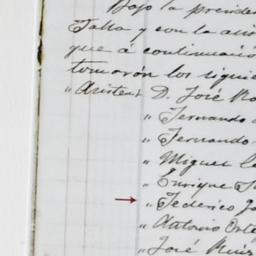 Bajo la preside
Falla y con la asis
que á continuació
tomarón los siguie
"Asisten D. José Ro
" Fernando
" Fernando
" Miguel
" Enrique
" Federico
" Antonio
" José Ruiz